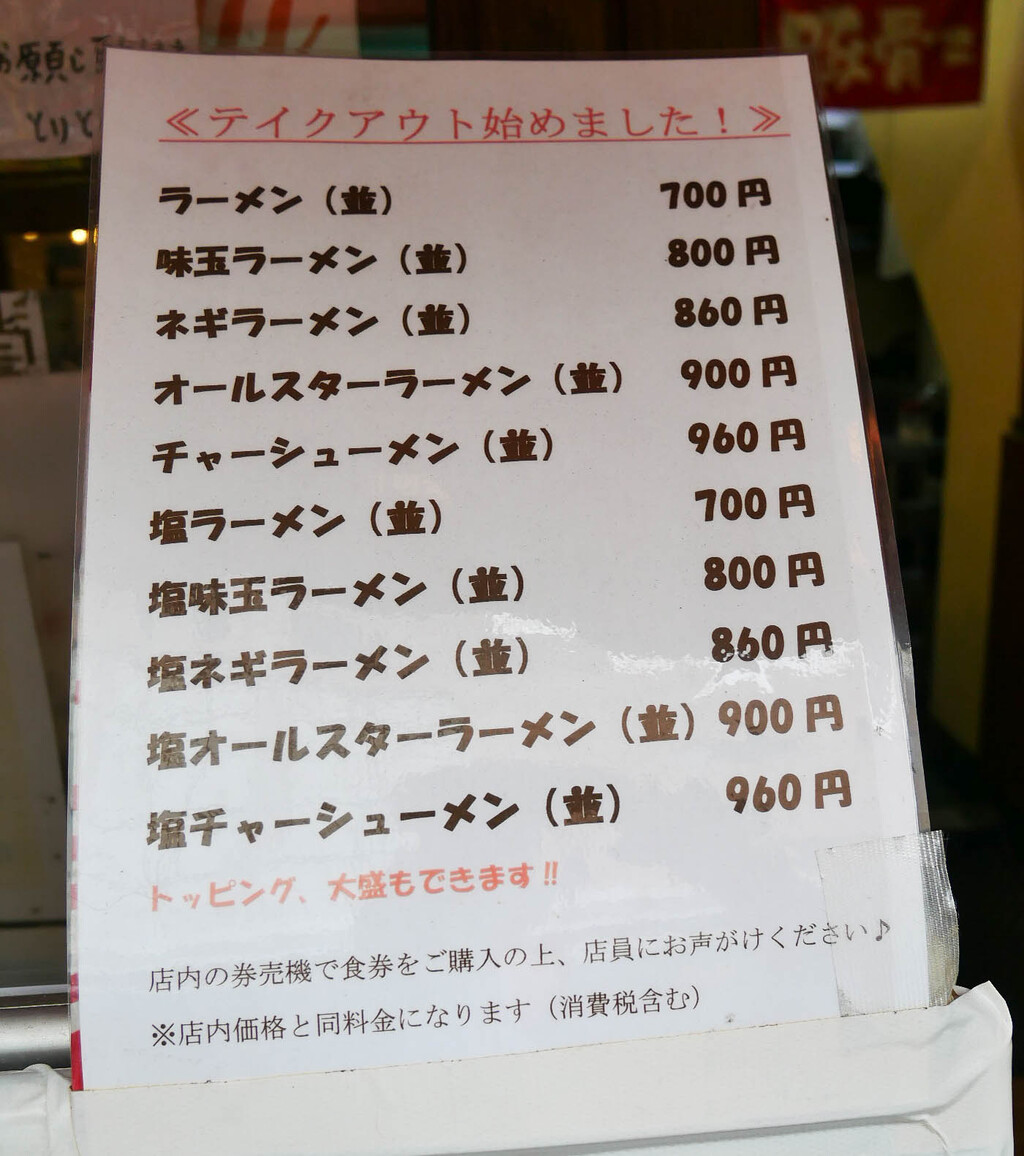 お願いし
とりと
豚骨ラ
≪テイクアウト始めました！≫
ラーメン（並） 700円
味玉ラーメン（並） 800円
ネギラーメン（並） 860円
オールスターラーメン（並） 900円
チャーシューメン（並） 960円
塩ラーメン（並） 700円
塩味玉ラーメン（並） 800円
塩ネギラーメン（並） 860円
塩オールスターラーメン（並） 900円
塩チャーシューメン（並） 960円
トッピング、大盛もできます‼
店内の券売機で食券をご購入の上、店員にお声がけください♪
※店内価格と同料金になります（消費税含む）